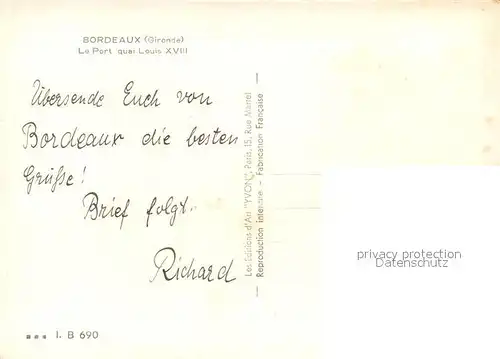 BORDEAUX (Gironde)
Le Port quai Louis XVIII
Übersende Euch von
Bordeaux die besten
Grüsse!
Brief folgt.
Richard
Les Editions d'Art "YVON", Paris, 15, Rue Martel
Reproduction interdite - Fabrication Française
privacy protection
Datenschutz
I. B 690